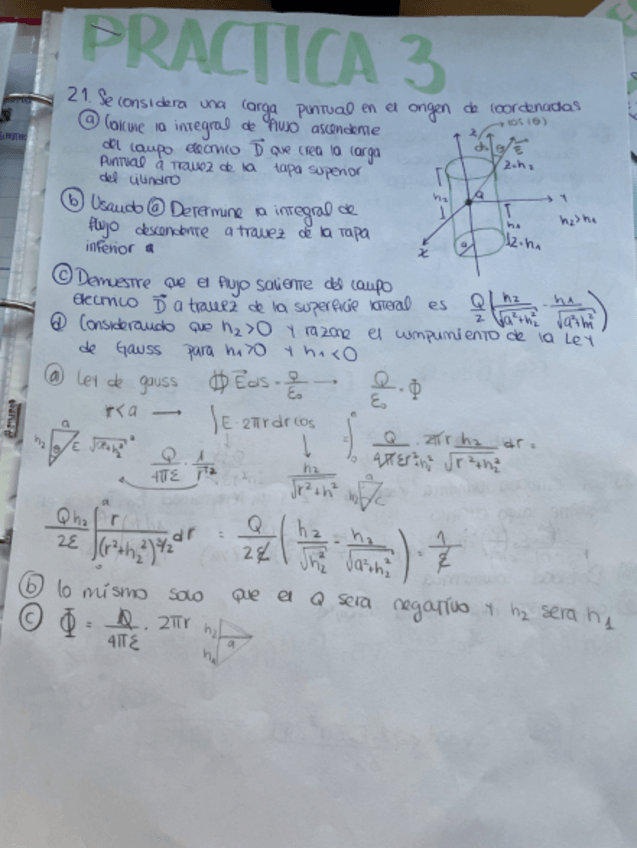 PRACTICA 3
21. Se considera una carga puntual en el origen de coordenadas
ⓐ Calcule la integral de flujo ascendente
del campo electrico D⃗ que crea la carga
Puntual a travez de la tapa superior
del cilindro
ⓑ Usando ⓐ Determine la integral de
flujo descendente a travez de la tapa
inferior
z
cos(θ)
ds
θ
E⃗
z=h₂
h₂
Q
Y
h₁
h₂>h₁
a
z=h₁
x
ⓒ Demuestre que el flujo saliente del campo
electrico D⃗ a travez de la superficie lateral es Q/2 (h₂/√(a²+h₂²) - h₁/√(a²+h₁²))
ⓓ Considerando que h₂>0 y razone el cumpumiento de la Ley
de Gauss para h₁>0 y h₁<0
ⓐ Ley de gauss ∯ E⃗ ds = Q/ε₀ → Q/ε₀ · Φ
r<a → ∫ E · 2πr dr cos
∫₀ᵃ Q/(4πε r²+h₂²) · 2πr h₂/√(r²+h₂²) dr =
a
h₂
θ
E
√(a²+h₂²)
Q/(4πε) · 1/r²
h₂/√(r²+h²)
Qh₂/2ε ∫₀ᵃ r/(r²+h₂²)^(3/2) dr = Q/2ε (h₂/√(h₂²) - h₂/√(a²+h₂²)) = 1/ε
ⓑ lo mismo solo que el Q sera negativo y h₂ sera h₁
ⓒ Φ = Q/(4πε) · 2πr
h₂
h₁
a